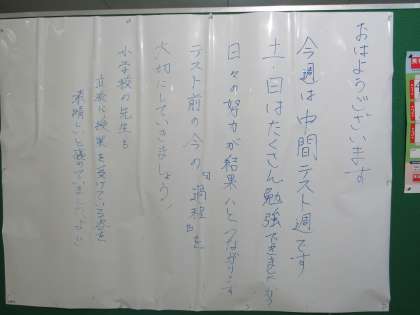 おはようございます
今週は中間テスト週です
土・日はたくさん勉強できましたか
日々の努力が結果へとつながります
テスト前の今の『過程』を
大切にしていきましょう!
小学校の先生も
真剣に授業を受けている姿を
素晴しいと褒めていましたよ